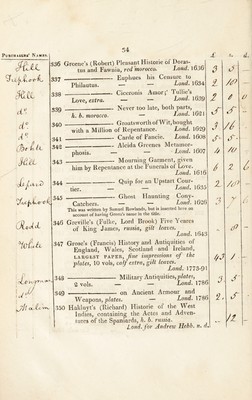 54
PURCHASERS' NAMES.
£ s. d.
Hill 336 Greene's (Robert) Pleasant Historie of Doras-
tus and Fawnia, red morocco. Lond. 1636 3 5
Triphook 337 ——— Euphues his Censure to
Philautus. — Lond. 1634 2 10
Hill 338 ——— Ciceronis Amor; Tullie's
Love, extra. — — Lond. 1639 2
do 339 ——— Never too late, both parts,
h. b. morocco. — Lond. 1621 5 5
do 340 ——— Groatsworth of Wit, bought
with a Million of Repentance. Lond. 1629 3 16
do 341 ——— Carde of Fancie. Lond. 1608 5 5
342 ——— Alcida Greenes Metamor-
phosis. — — Lond. 1607 4 10
Hill 343 ——— Mourning Garment, given
him by Repentance at the Funerals of Love.
Lond. 1616 6 2 6
344 ——— Quip for an Upstart Cour-
tier. — — Lond. 1635 2 10
Triphook 345 ——— Ghost Haunting Cony-
Catchers. — — Lond. 1626 3
This was written by Samuel Rowlands, but is inserted here on
account of having Green's name to the title.
Rodd 346 Greville's (Fulke, Lord Brook) Five Yeares
of King James, russia, gilt leaves.
Lond. 1643
White 347 Grose's (Francis) History and Antiquities of
England, Wales, Scotland and Ireland,
LARGEST PAPER, fine impressions of the
plates, 10 vols, calf extra, gilt leaves.
Lond. 1773-91 43 1
Longman 348 ——— Military Antiquities, plates,
2 vols. — — Lond. 1786 3 5
do 349 ——— on Ancient Armour and
Weapons, plates. — Lond. 1786 2 5
350 Hakluyt's (Richard) Historie of the West
Indies, containing the Actes and Adven-
tures of the Spaniards, h. b. russia.
Lond. for Andrew Hebb. n. d. 12